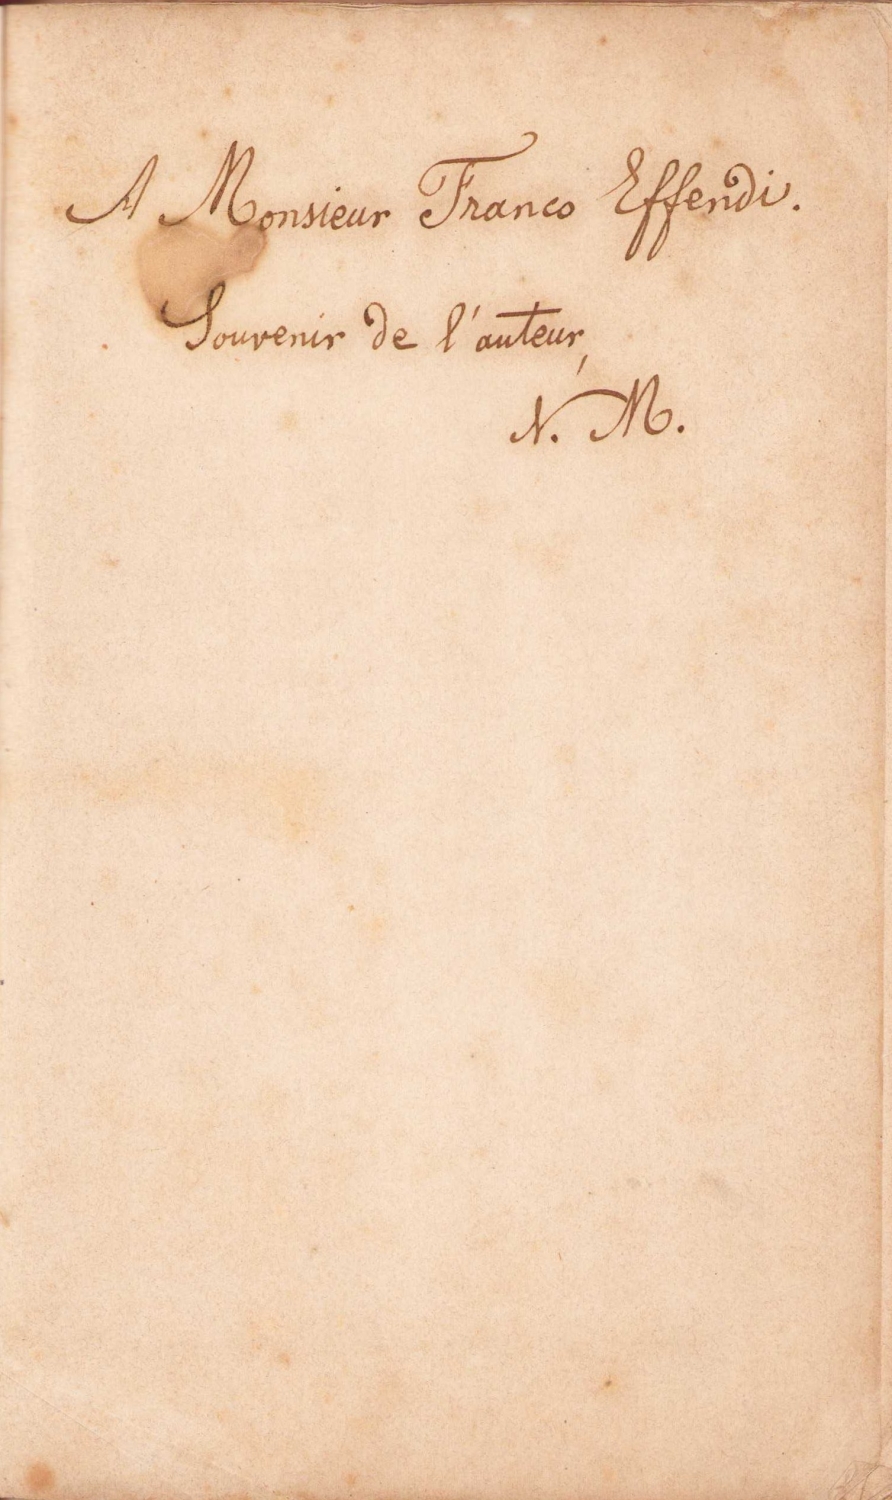 A Monsieur Franco Effendi.
Souvenir de l'auteur,
N. M.